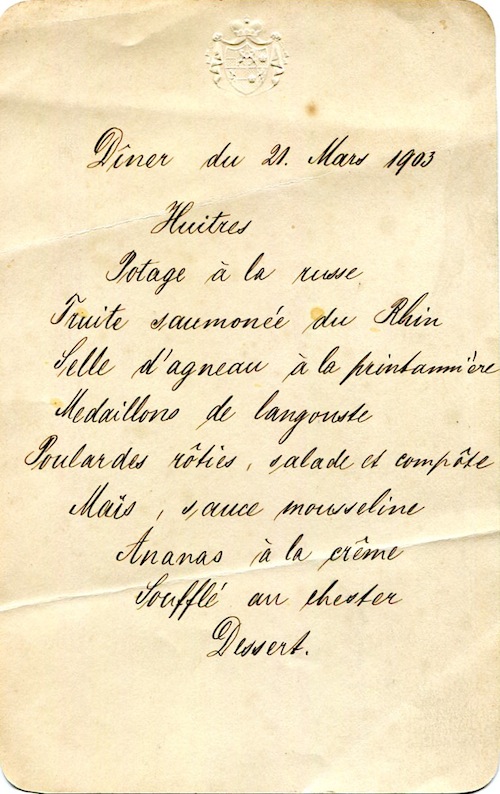 Dîner du 21. Mars 1903
Huitres
Potage à la russe
Truite saumonée du Rhin
Selle d'agneau à la printannière
Medaillons de langouste
Poulardes rôties, salade et compôte
Maïs, sauce mousseline
Ananas à la crême
Soufflé au chester
Dessert.